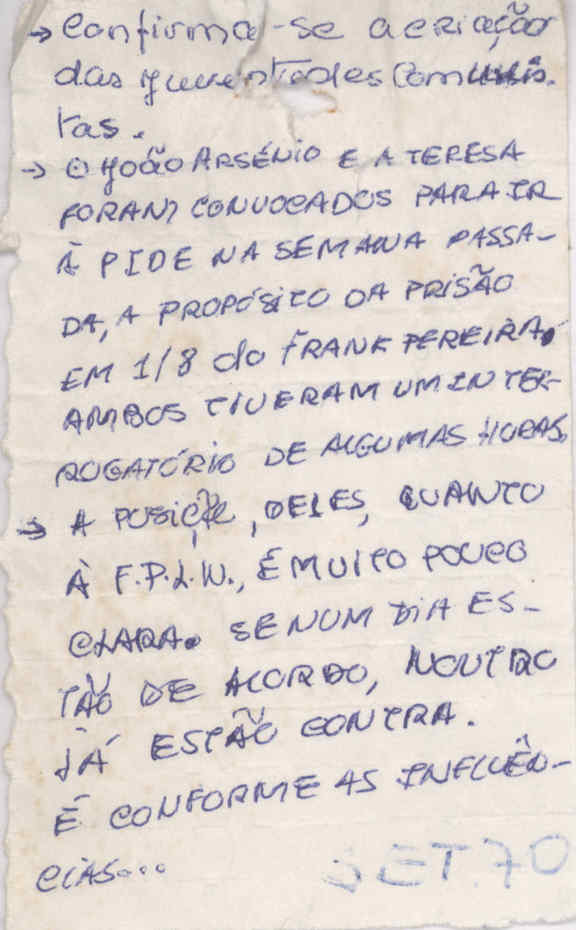 → Confirma-se a criação
das Juventudes Comunis-
tas.
→ O João ARSÉNIO E A TERESA
FORAM CONVOCADOS PARA IR
À PIDE NA SEMANA PASSA-
DA, A PROPÓSITO DA PRISÃO
EM 1/8 do FRANK PEREIRA.
AMBOS TIVERAM UM INTER-
ROGATÓRIO DE ALGUMAS HORAS.
→ A POSIÇÃO, DELES, QUANTO
À F.P.L.N., É MUITO POUCO
CLARA. SE NUM DIA ES-
TÃO DE ACORDO, NOUTRO
JÁ ESTÃO CONTRA.
É CONFORME AS INFLUÊN-
CIAS...
SET.70